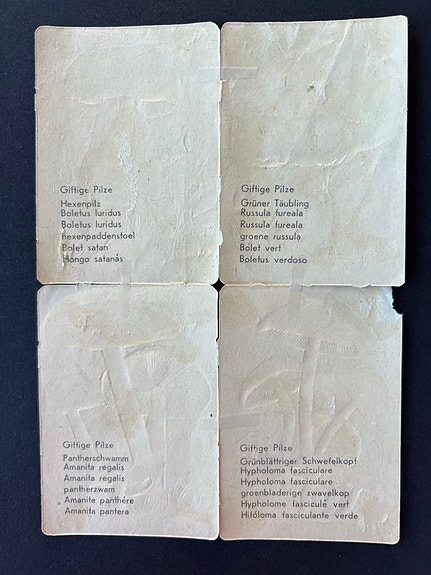 Giftige Pilze
Hexenpilz
Boletus luridus
Boletus luridus
hexenpaddenstoel
Bolet satan
Hongo satanás
Giftige Pilze
Grüner Täubling
Russula fureala
Russula fureala
groene russula
Bolet vert
Boletus verdoso
Giftige Pilze
Pantherschwamm
Amanita regalis
Amanita regalis
pantherzwam
Amanite panthère
Amanita pantera
Giftige Pilze
Grünblättriger Schwefelkopf
Hypholoma fasciculare
Hypholoma fasciculare
groenbladerige zwavelkop
Hypholome fasciculé vert
Hifóloma fasciculante verde